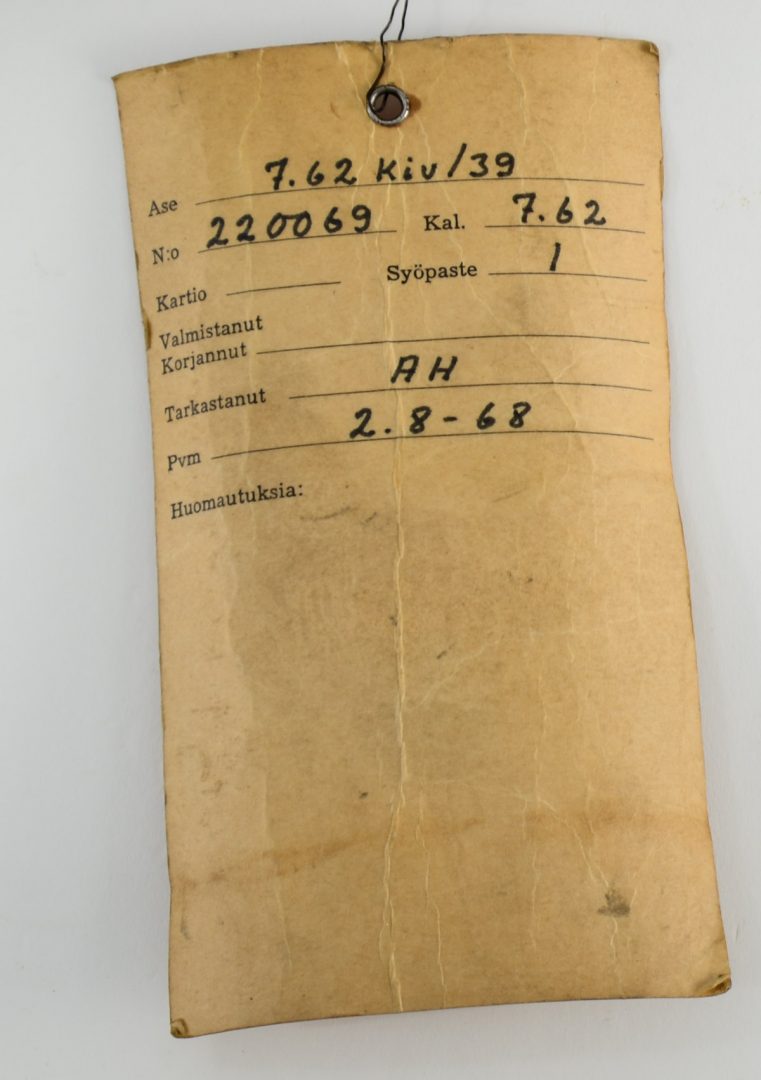 Ase 7.62 kiv/39
N:o 220069 Kal. 7.62
Kartio Syöpaste 1
Valmistanut
Korjannut
Tarkastanut AH
Pvm 2.8-68
Huomautuksia: